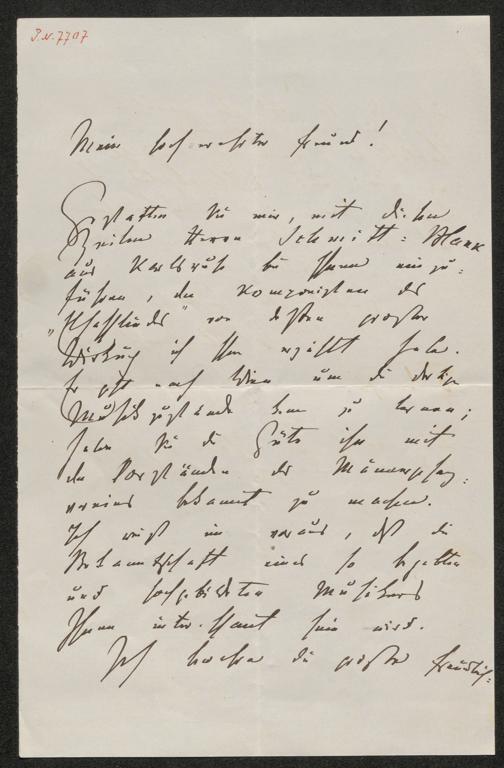 I.N. 7707
Mein hochverehrter Freund!
Gestatten Sie mir, mit diesen
Zeilen Herrn Schmitt=Blank
aus Karlsruhe bei Ihnen einzu=
führen, den Komponisten des
von dessen großer
Wirkung ich Ihnen erzählt habe.
Er geht nach Wien um die dortigen
Musikzustände kennen zu lernen;
haben Sie die Güte ihn mit
den Vorständen der Männergesang=
vereine bekannt zu machen.
Ich weiß im voraus, daß die
Bekanntschaft eines so begabten
und hochgebildeten Musikers
Ihnen interessant sein wird.
Ich die große Freundlich=